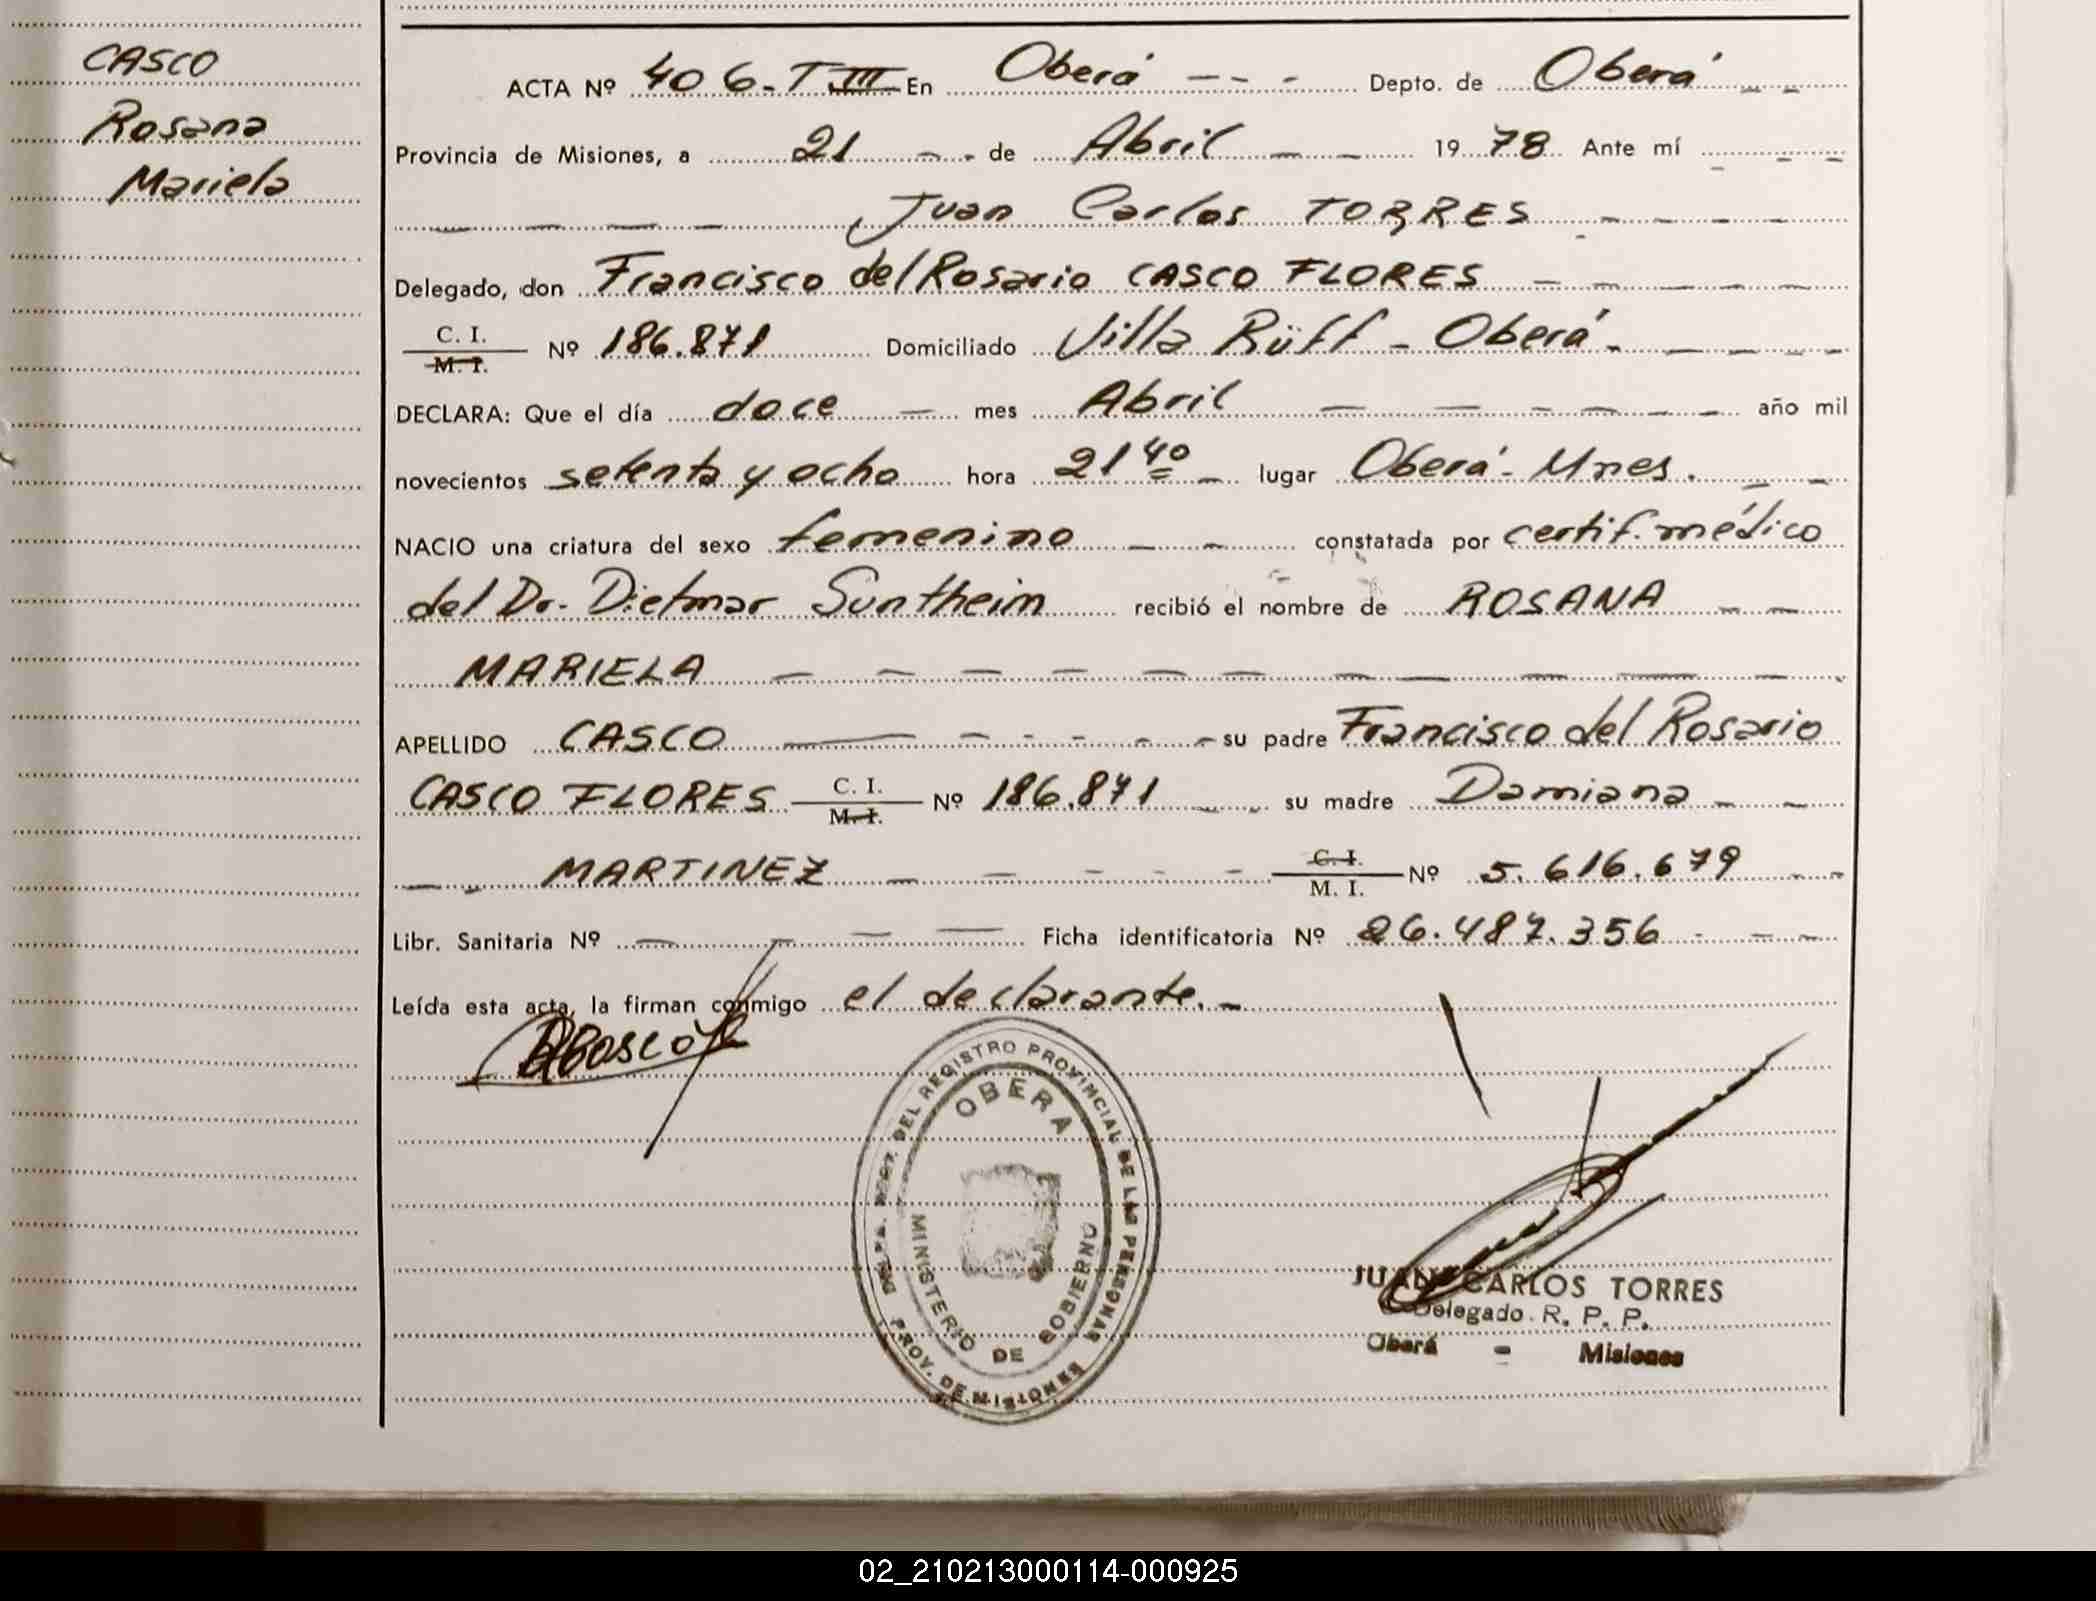 CASCO
Rosana
Mariela
ACTA Nº 406-T III En Oberá - - - Depto. de Oberá - -
Provincia de Misiones, a 21 - - de Abril - - 1978 Ante mí - - -
- - - Juan Carlos TORRES - - - -
Delegado, don Francisco del Rosario CASCO FLORES - - - - - -
C. I.
M. I. Nº 186.871 Domiciliado Villa Rüff - Oberá - - - - -
DECLARA: Que el día doce - mes Abril - - - - - - año mil
novecientos setenta y ocho hora 21 40 - lugar Oberá - Mnes. - -
NACIO una criatura del sexo femenino - - constatada por certif. médico
del Dr. Dietmar Suntheim recibió el nombre de ROSANA - -
MARIELA - - - - - - - - - - -
APELLIDO CASCO - - - - - - su padre Francisco del Rosario
CASCO FLORES C. I.
M. I. Nº 186.871 - - su madre Damiana - - -
- - MARTINEZ - - - - - C. I.
M. I. Nº 5.616.679 - -
Libr. Sanitaria Nº - - - - Ficha identificatoria Nº 26.487.356 - - -
Leída esta acta, la firman conmigo el declarante. -
DEL REGISTRO PROVINCIAL DE LAS PERSONAS
OBERA
MINISTERIO DE GOBIERNO
PROV. DE MISIONES
JUAN CARLOS TORRES
Delegado R. P. P.
Oberá - Misiones
02_210213000114-000925